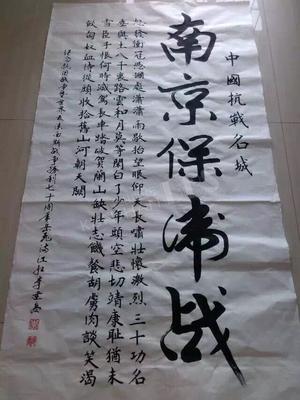 中國抗戰名城
南京保衛战
怒發衝冠憑欄處瀟瀟雨歇抬望眼仰天長嘯壯懷激烈三十功名
塵與土八千裏路雲和月莫等閑白了少年頭空悲切靖康耻猶未
雪臣子恨何時滅駕長車踏破賀蘭山缺壯志饑餐胡虜肉談笑渴
飲匈奴血待從頭收拾舊山河朝天闕
戰爭勝利七十周年岳飛满江红